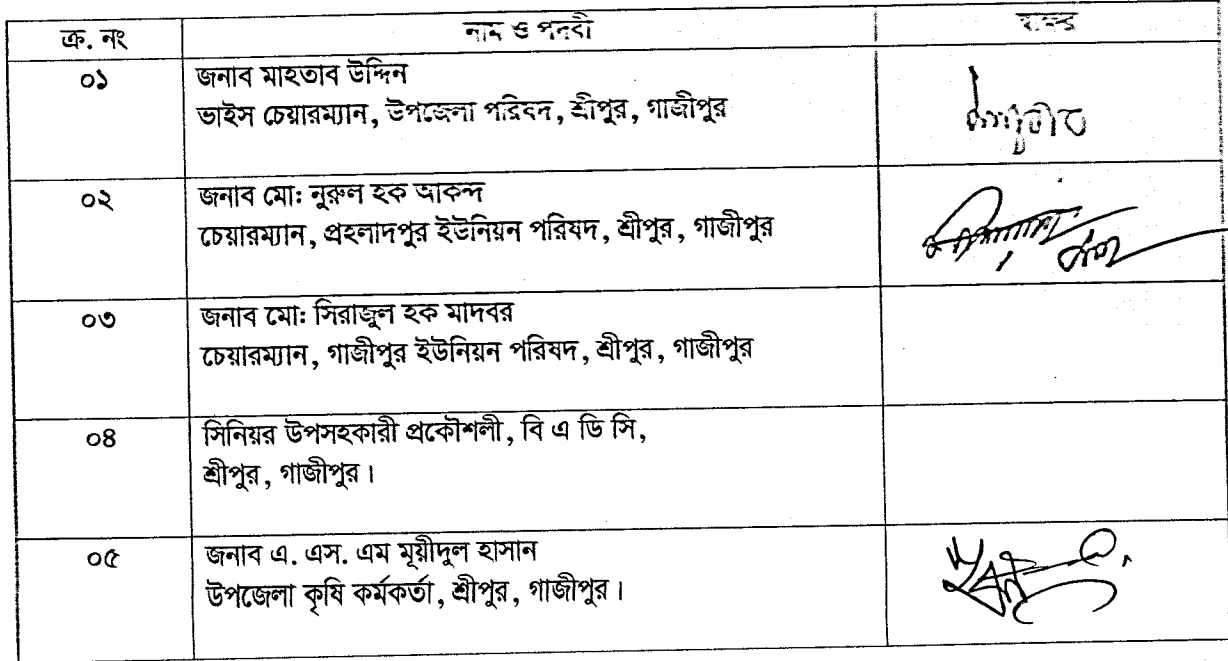 ক্র. নং নাম ও পদবী
০১ জনাব মাহতাব উদ্দিন
ভাইস চেয়ারম্যান, উপজেলা পরিষদ, শ্রীপুর, গাজীপুর
০২ জনাব মো: নুরুল হক আকন্দ
চেয়ারম্যান, প্রহলাদপুর ইউনিয়ন পরিষদ, শ্রীপুর, গাজীপুর
০৩ জনাব মো: সিরাজুল হক মাদবর
চেয়ারম্যান, গাজীপুর ইউনিয়ন পরিষদ, শ্রীপুর, গাজীপুর
০৪ সিনিয়র উপসহকারী প্রকৌশলী, বি এ ডি সি,
শ্রীপুর, গাজীপুর।
০৫ জনাব এ. এস. এম মূয়ীদুল হাসান
উপজেলা কৃষি কর্মকর্তা, শ্রীপুর, গাজীপুর।